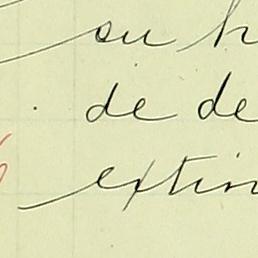 su h
de de
extin